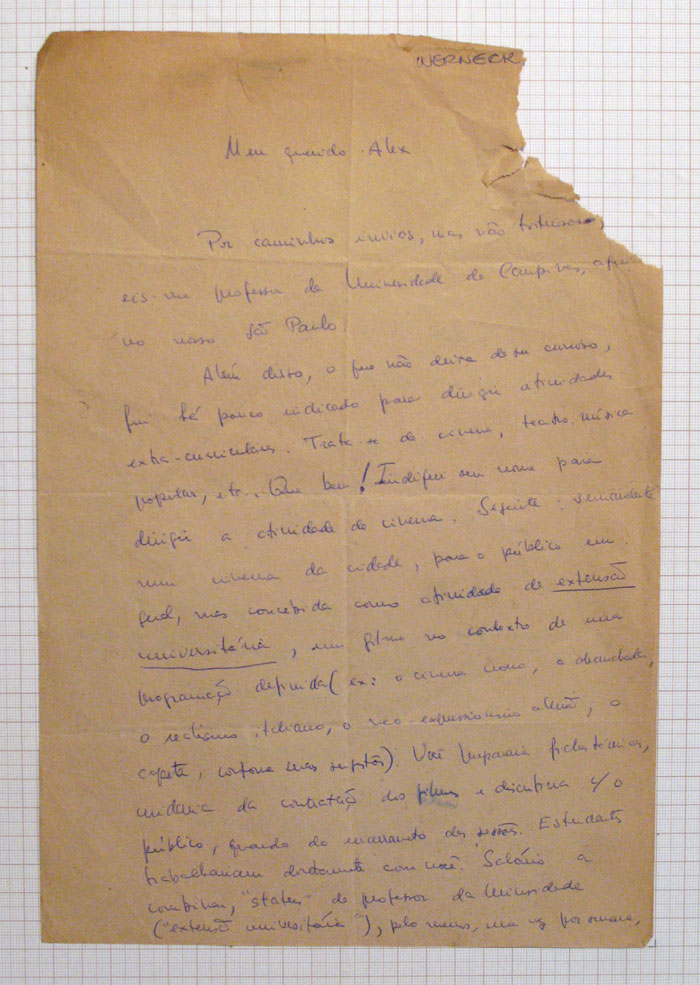 WERNECK
Meu querido Alex
Por caminhos ínvios, mas não tortuosos,
eis-me professor da Universidade de Campinas, afinal
no nosso São Paulo
Além disso, o que não deixa de ser curioso,
fui há pouco indicado para dirigir atividades
extra-curriculares. Trata-se de cinema, teatro, música
popular, etc.. Que bem! Indiquei seu nome para
dirigir a atividade de cinema. Seguinte: semanalmente
num cinema da cidade, para o público em
geral, mas concebida como atividade de extensão
universitária, um filme no contexto de uma
programação definida (ex: o cinema novo, o
o realismo italiano, o neo-expressionismo alemão, o
capeta, conforme suas sugestões). Você prepararia fichas técnicas,
cuidaria da contratação dos filmes e discutiria c/o
público, quando do encerramento das sessões. Estudantes
trabalhariam diretamente com você. Salário a
combinar, "status" de professor da Universidade
("extensão universitária"), pelo menos, uma vez por semana,